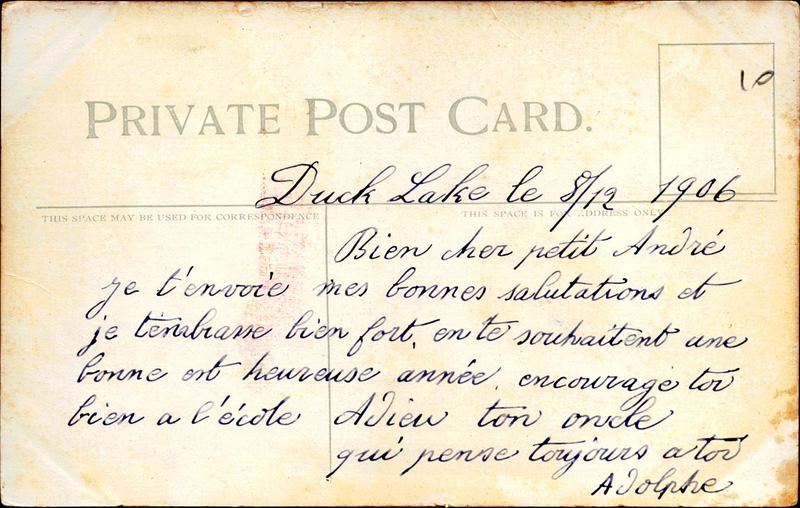 10
PRIVATE POST CARD.
Duck Lake le 8/12 1906
THIS SPACE MAY BE USED FOR CORRESPONDENCE
THIS SPACE IS FOR ADDRESS ONLY
Bien cher petit André
je t'envoie mes bonnes salutations et
je t'embrasse bien fort, en te souhaitent une
bonne est heureuse année, encourage toi
bien a l'école Adieu ton oncle
qui pense toujours a toi
Adolphe